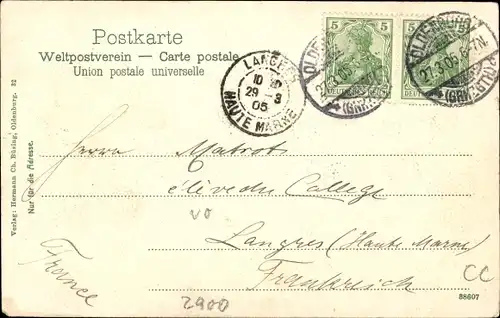 Postkarte
Weltpostverein — Carte postale
Union postale universelle
5
5
DEUTSCHES
DEUT
OLDENBURG
27.3.05
(GRH)
OLDENBURG
27.3.05. 6-7N.
(GRHZGT.)
LANGRES
10
29 - 3
05
HAUTE MARNE
Verlag: Hermann Ch. Büsing, Oldenburg. 32
Nur für die Adresse.
Herrn Matrot
élève du College
vo
Langres (Haute Marne)
Frankreich
France
CC
2900
38607